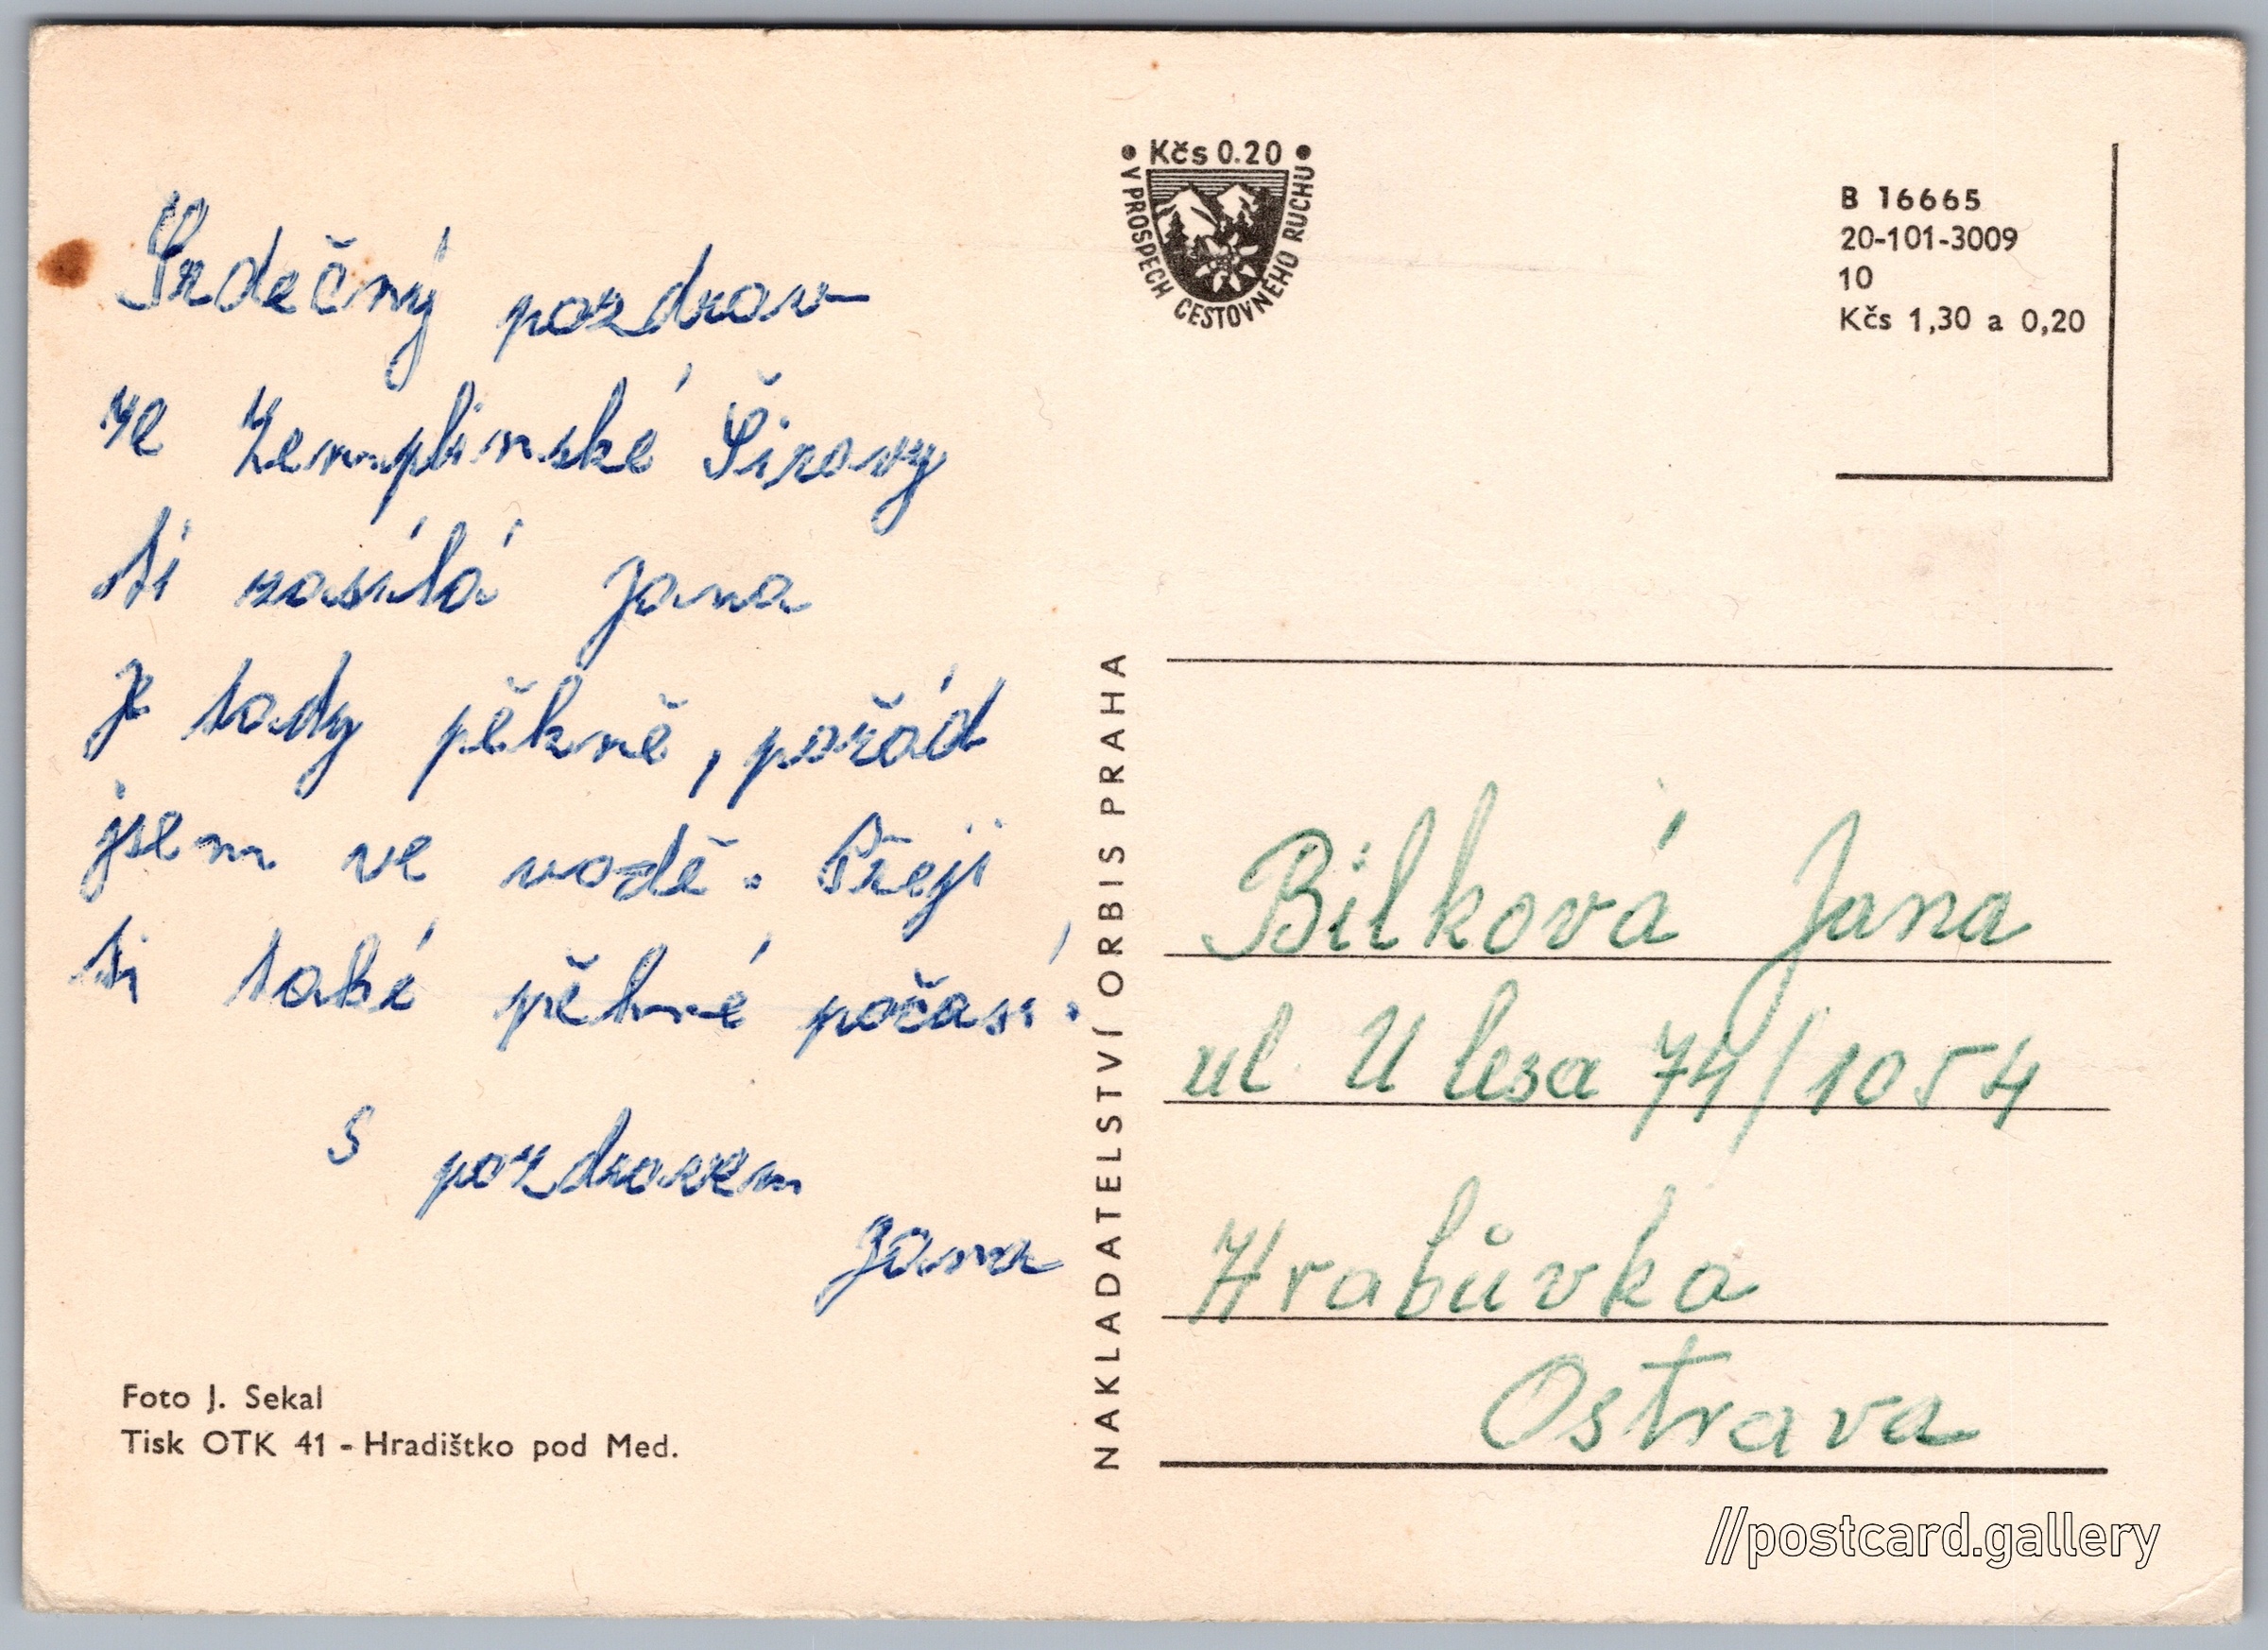 Srdečný pozdrav
ze Zemplinské Šíravy
ti zasílá Jana
Je tady pěkně, pořád
jsem ve vodě. Přeji
ti také pěkné počasí.
S pozdravem
Jana
Foto J. Sekal
Tisk OTK 41 - Hradištko pod Med.
NAKLADATELSTVÍ ORBIS PRAHA
• Kčs 0.20 •
V PROSPECH CESTOVNÉHO RUCHU
B 16665
20-101-3009
10
Kčs 1,30 a 0,20
Bilková Jana
ul. U lesa 74/1054
Hrabůvka
Ostrava
//postcard.gallery